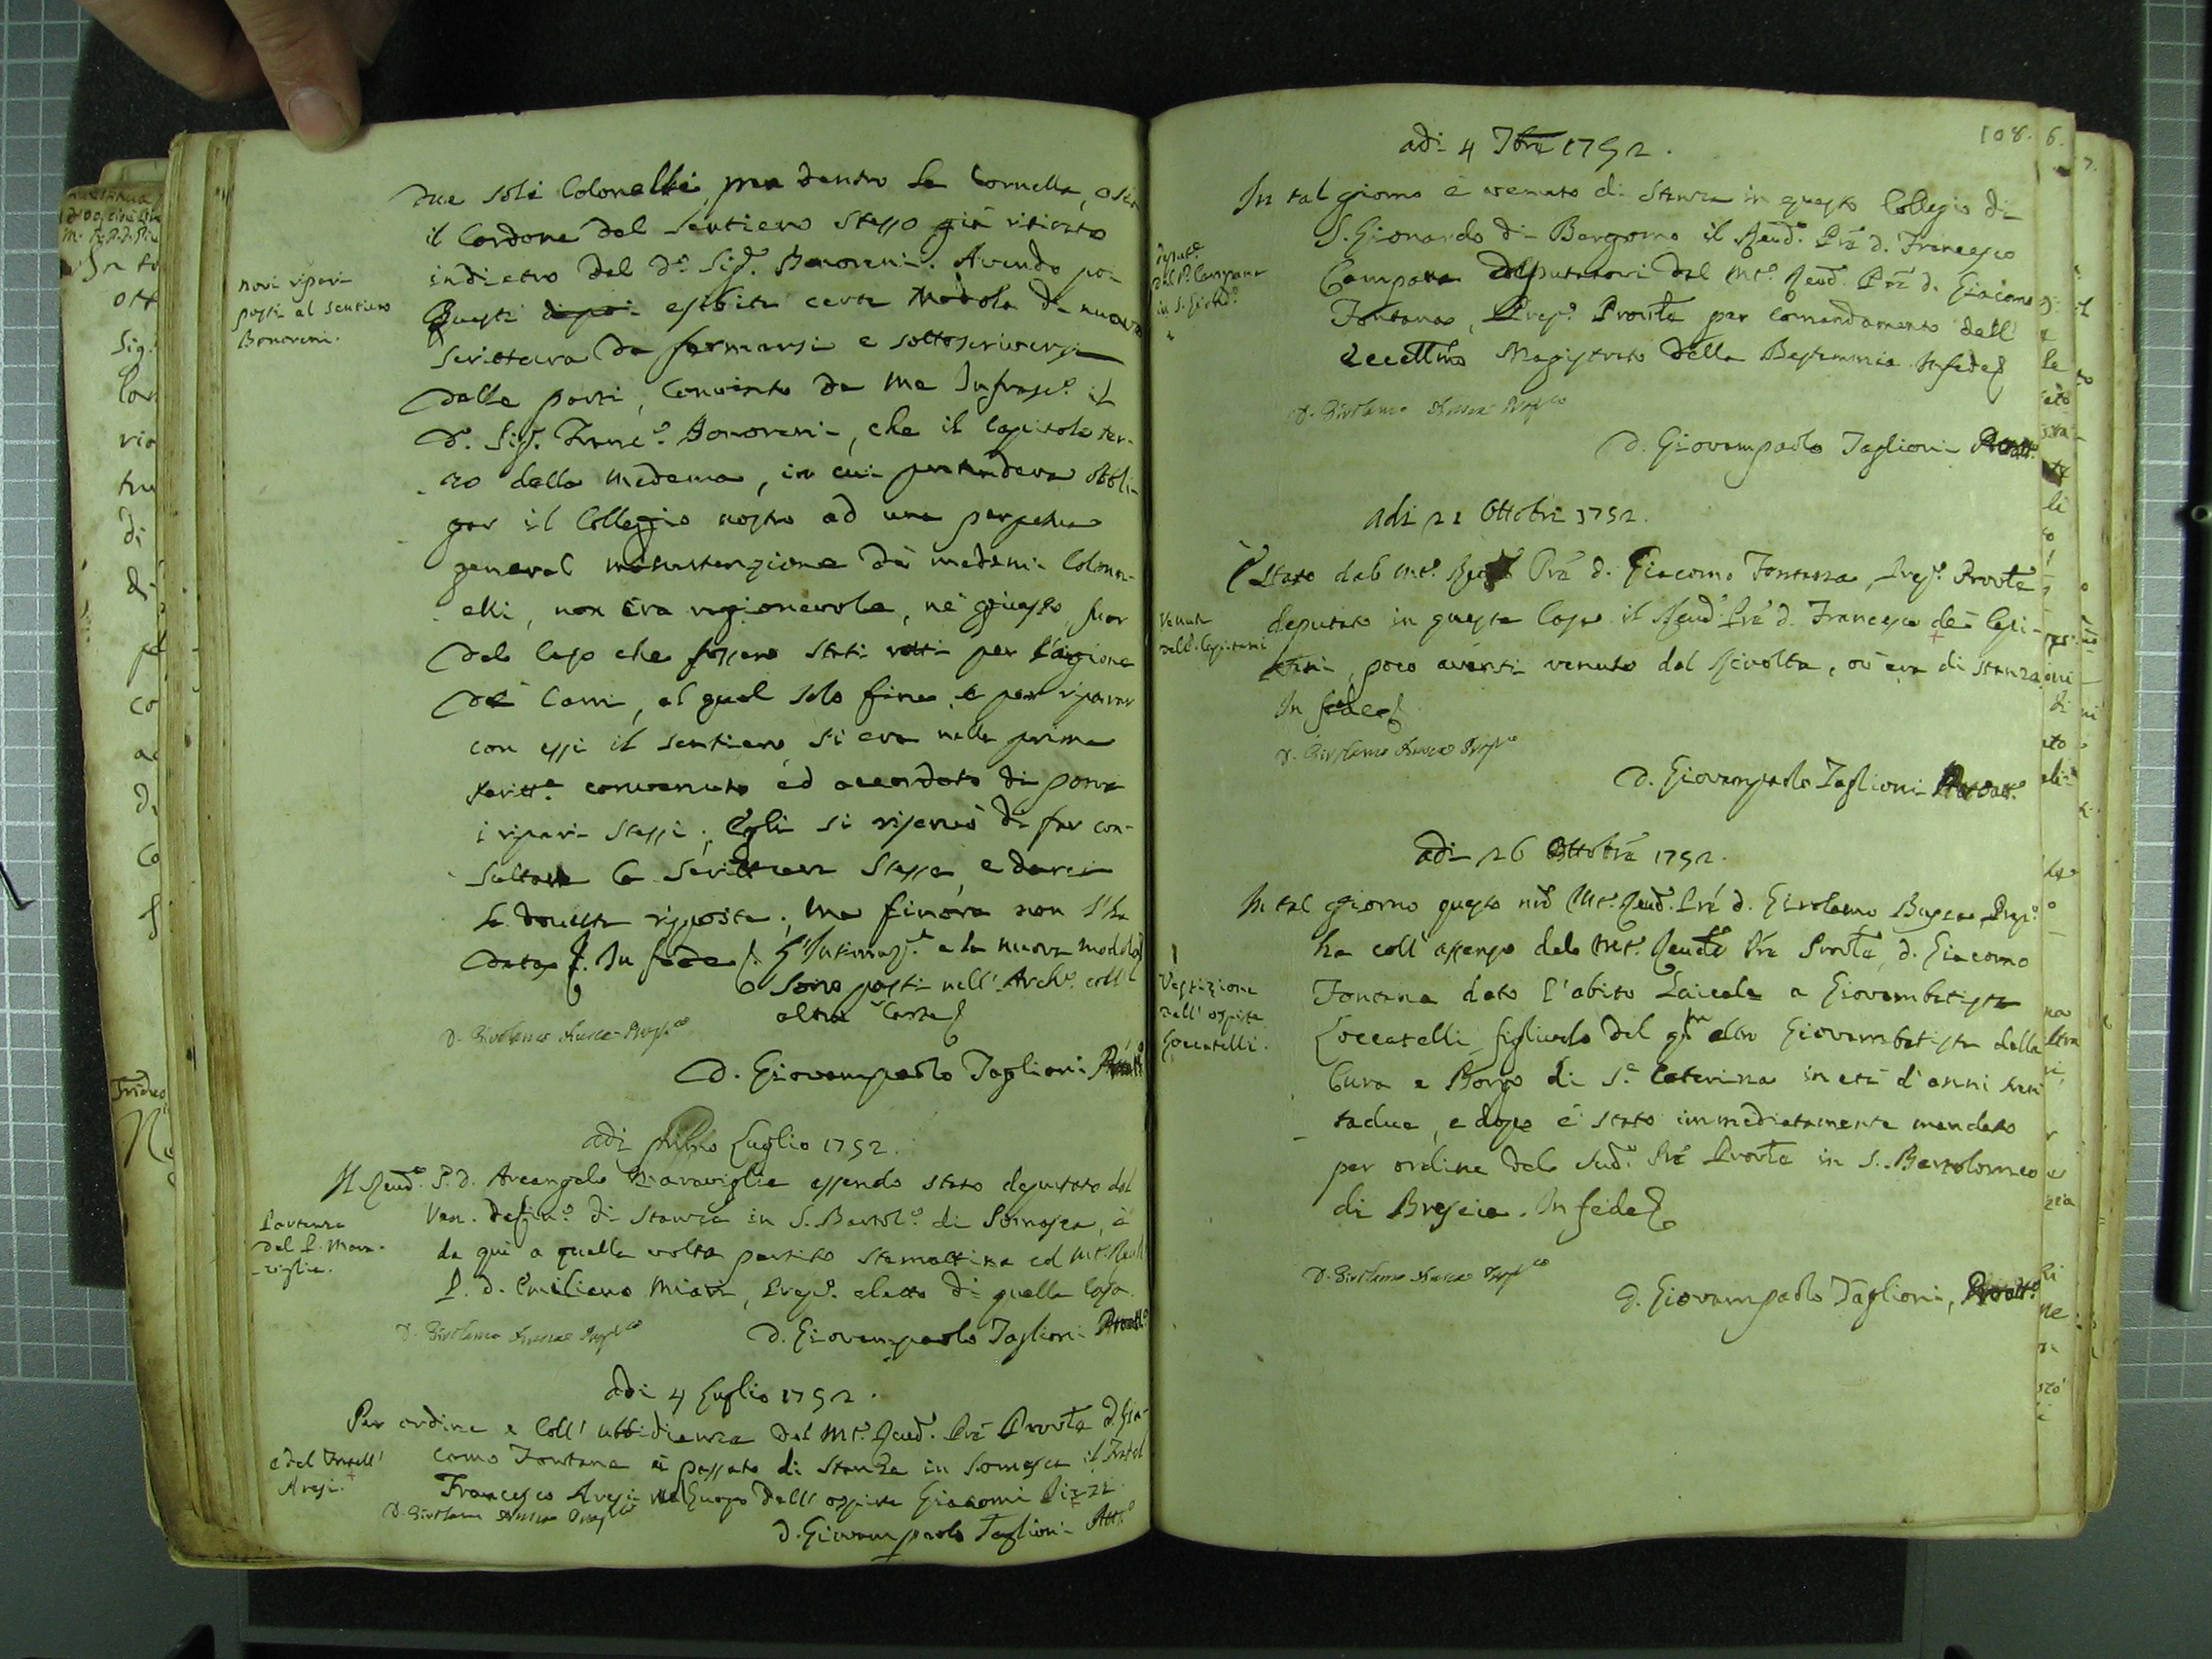 due soli Colonelli, ma dentro la Cornella, osia
il Cordone del sentiero stesso già ritirato
indietro dal d.º Sig.r Bonoreni. Avendo poi
Questi esibita certa Modola di nuova
Scrittura da formarsi e sottoscriversi
dalle parti, Convinto da me Infrasc.º il
d.º Sig.r Franc.º Bonoreni, che il Capitolo ter-
zo della medema, in cui pretendeva obbli-
gar il Collegio nostro ad una perpetua
general manutenzione dei medemi Colonn-
elli, non era ragionevole, nè giusto, fuor
del caso che fossero stati rotti per cagione
dei Carri, al qual solo fine, e per riparar
con essi il sentiero si era nella prima
Scritt.a convenuto ed accordato di porvi
i ripari stessi; Egli si riservò di far con-
sultare la Scrittura stessa, e darci
la dovuta risposta; ma finora non l'ha
data. In fede
e la nuova modola
sono posti nell'Arch.º coll'
altre Carte
novi ripari
posti al sentiero
Bonoreni.
D. Girolamo Prep.to
D. Giovampaolo Taglioni
adi primo Luglio 1752.
Il Reud.º P. d. Arcangelo Maraviglia essendo stato deputato dal
Ven. Defin.º di stanza in S. Bartol.º di Somasca, è
da qui a quella volta partito stamattina col Mt.º Reud.
P. d. Emiliano Miani, Prep.º eletto di quella Casa.
Partenza
del P. Mara-
-viglia.
D. Girolamo Prep.to
D. Giovampaolo Taglioni
adi 4 Luglio 1752.
Per ordine e coll' ubbidienza del Mt.º Reud.º Prē Provle D. Gia-
como Fontana è passato di stanza in Somasca il Fratel
Francesco Aresi nel luogo dell' ospite Giacomi
e del Fratell'
Aresi.
D. Girolamo Prep.to
d. Giovampaolo Taglioni Att.º
108.
adi 4 7bre 1752.
In tal giorno è venuto di stanza in questo Collegio di
S. Gionardo di Bergomo il Reud.º Prē d. Francesco
Campana dal Mt.º Reud.º Prē d. Giacomo
Fontana, Prep.º Provle per comandamento dell'
Eccellmo Magistrato della Bestemmia. In fede
del P. Campana
in S. Giond.º
D. Girolamo Prep.to
D. Giovampaolo Taglioni
Adi 21 Ottobre 1752.
È stato dal Mt.º Prē d. Giacomo Fontana, Prep.º Provle
deputato in questa Casa il Reud.º Prē d. Francesco de Capi-
tani, poco avanti venuto dal Rivolta, ov'era di stanza
In fede
Venuta
del P. Capitani
D. Girolamo Prep.to
D. Giovampaolo Taglioni
adi 26 Ottobre 1752.
In tal giorno questo nrō Mt.º Reud.º Prē d. Girolamo Prep.º
ha coll' assenso del Mt.º Reud.º Prē Provle, d. Giacomo
Fontana dato l'abito Laicale a Giovambatista
Loccatelli figliuolo del qm altro Giovambatista della
Cura e Borgo di S.a Caterina in età d'anni tren-
tadue, e dopo è stato immediatamente mandato
per ordine del sud.º Prē Provle in S. Bartolomeo
di Brescia. In fede
Vestizione
dell' ospite
Loccatelli.
D. Girolamo Prep.to
D. Giovampaolo Taglioni,